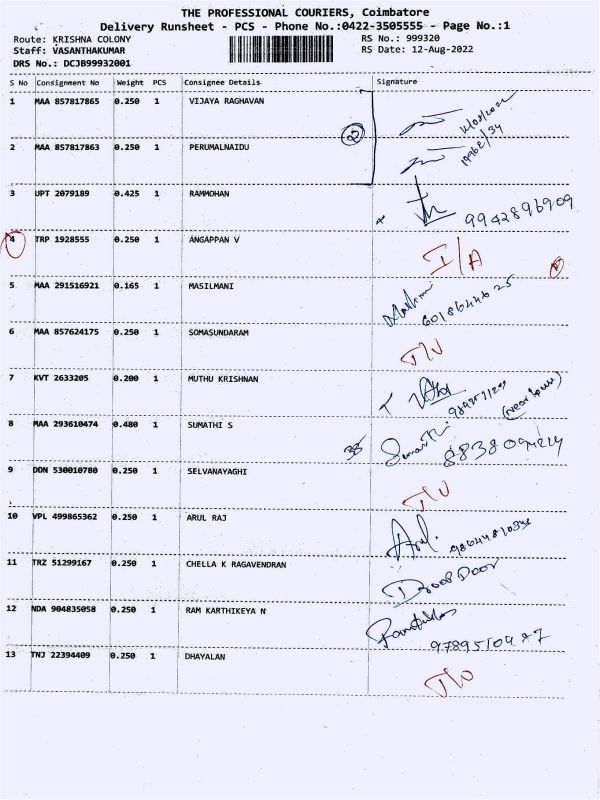 THE PROFESSIONAL COURIERS, Coimbatore
Delivery Runsheet - PCS - Phone No.:0422-3505555 - Page No.:1
Route: KRISHNA COLONY RS No.: 999320
Staff: VASANTHAKUMAR RS Date: 12-Aug-2022
DRS No.: DCJB99932001
S No Consignment No Weight PCS Consignee Details Signature
1 MAA 857817865 0.250 1 VIJAYA RAGHAVAN
2 MAA 857817863 0.250 1 PERUMALNAIDU
3 UPT 2079189 0.425 1 RAMMOHAN 9942896909
4 TRP 1928555 0.250 1 ANGAPPAN V I/A
5 MAA 291516921 0.165 1 MASILMANI
6 MAA 857624175 0.250 1 SOMASUNDARAM
7 KVT 2633205 0.200 1 MUTHU KRISHNAN
8 MAA 293610474 0.480 1 SUMATHI S
9 DDN 530010780 0.250 1 SELVANAYAGHI
10 VPL 499865362 0.250 1 ARUL RAJ Arul.
11 TRZ 51299167 0.250 1 CHELLA K RAGAVENDRAN Door Door
12 NDA 904835058 0.250 1 RAM KARTHIKEYA N
13 TNJ 22394409 0.250 1 DHAYALAN